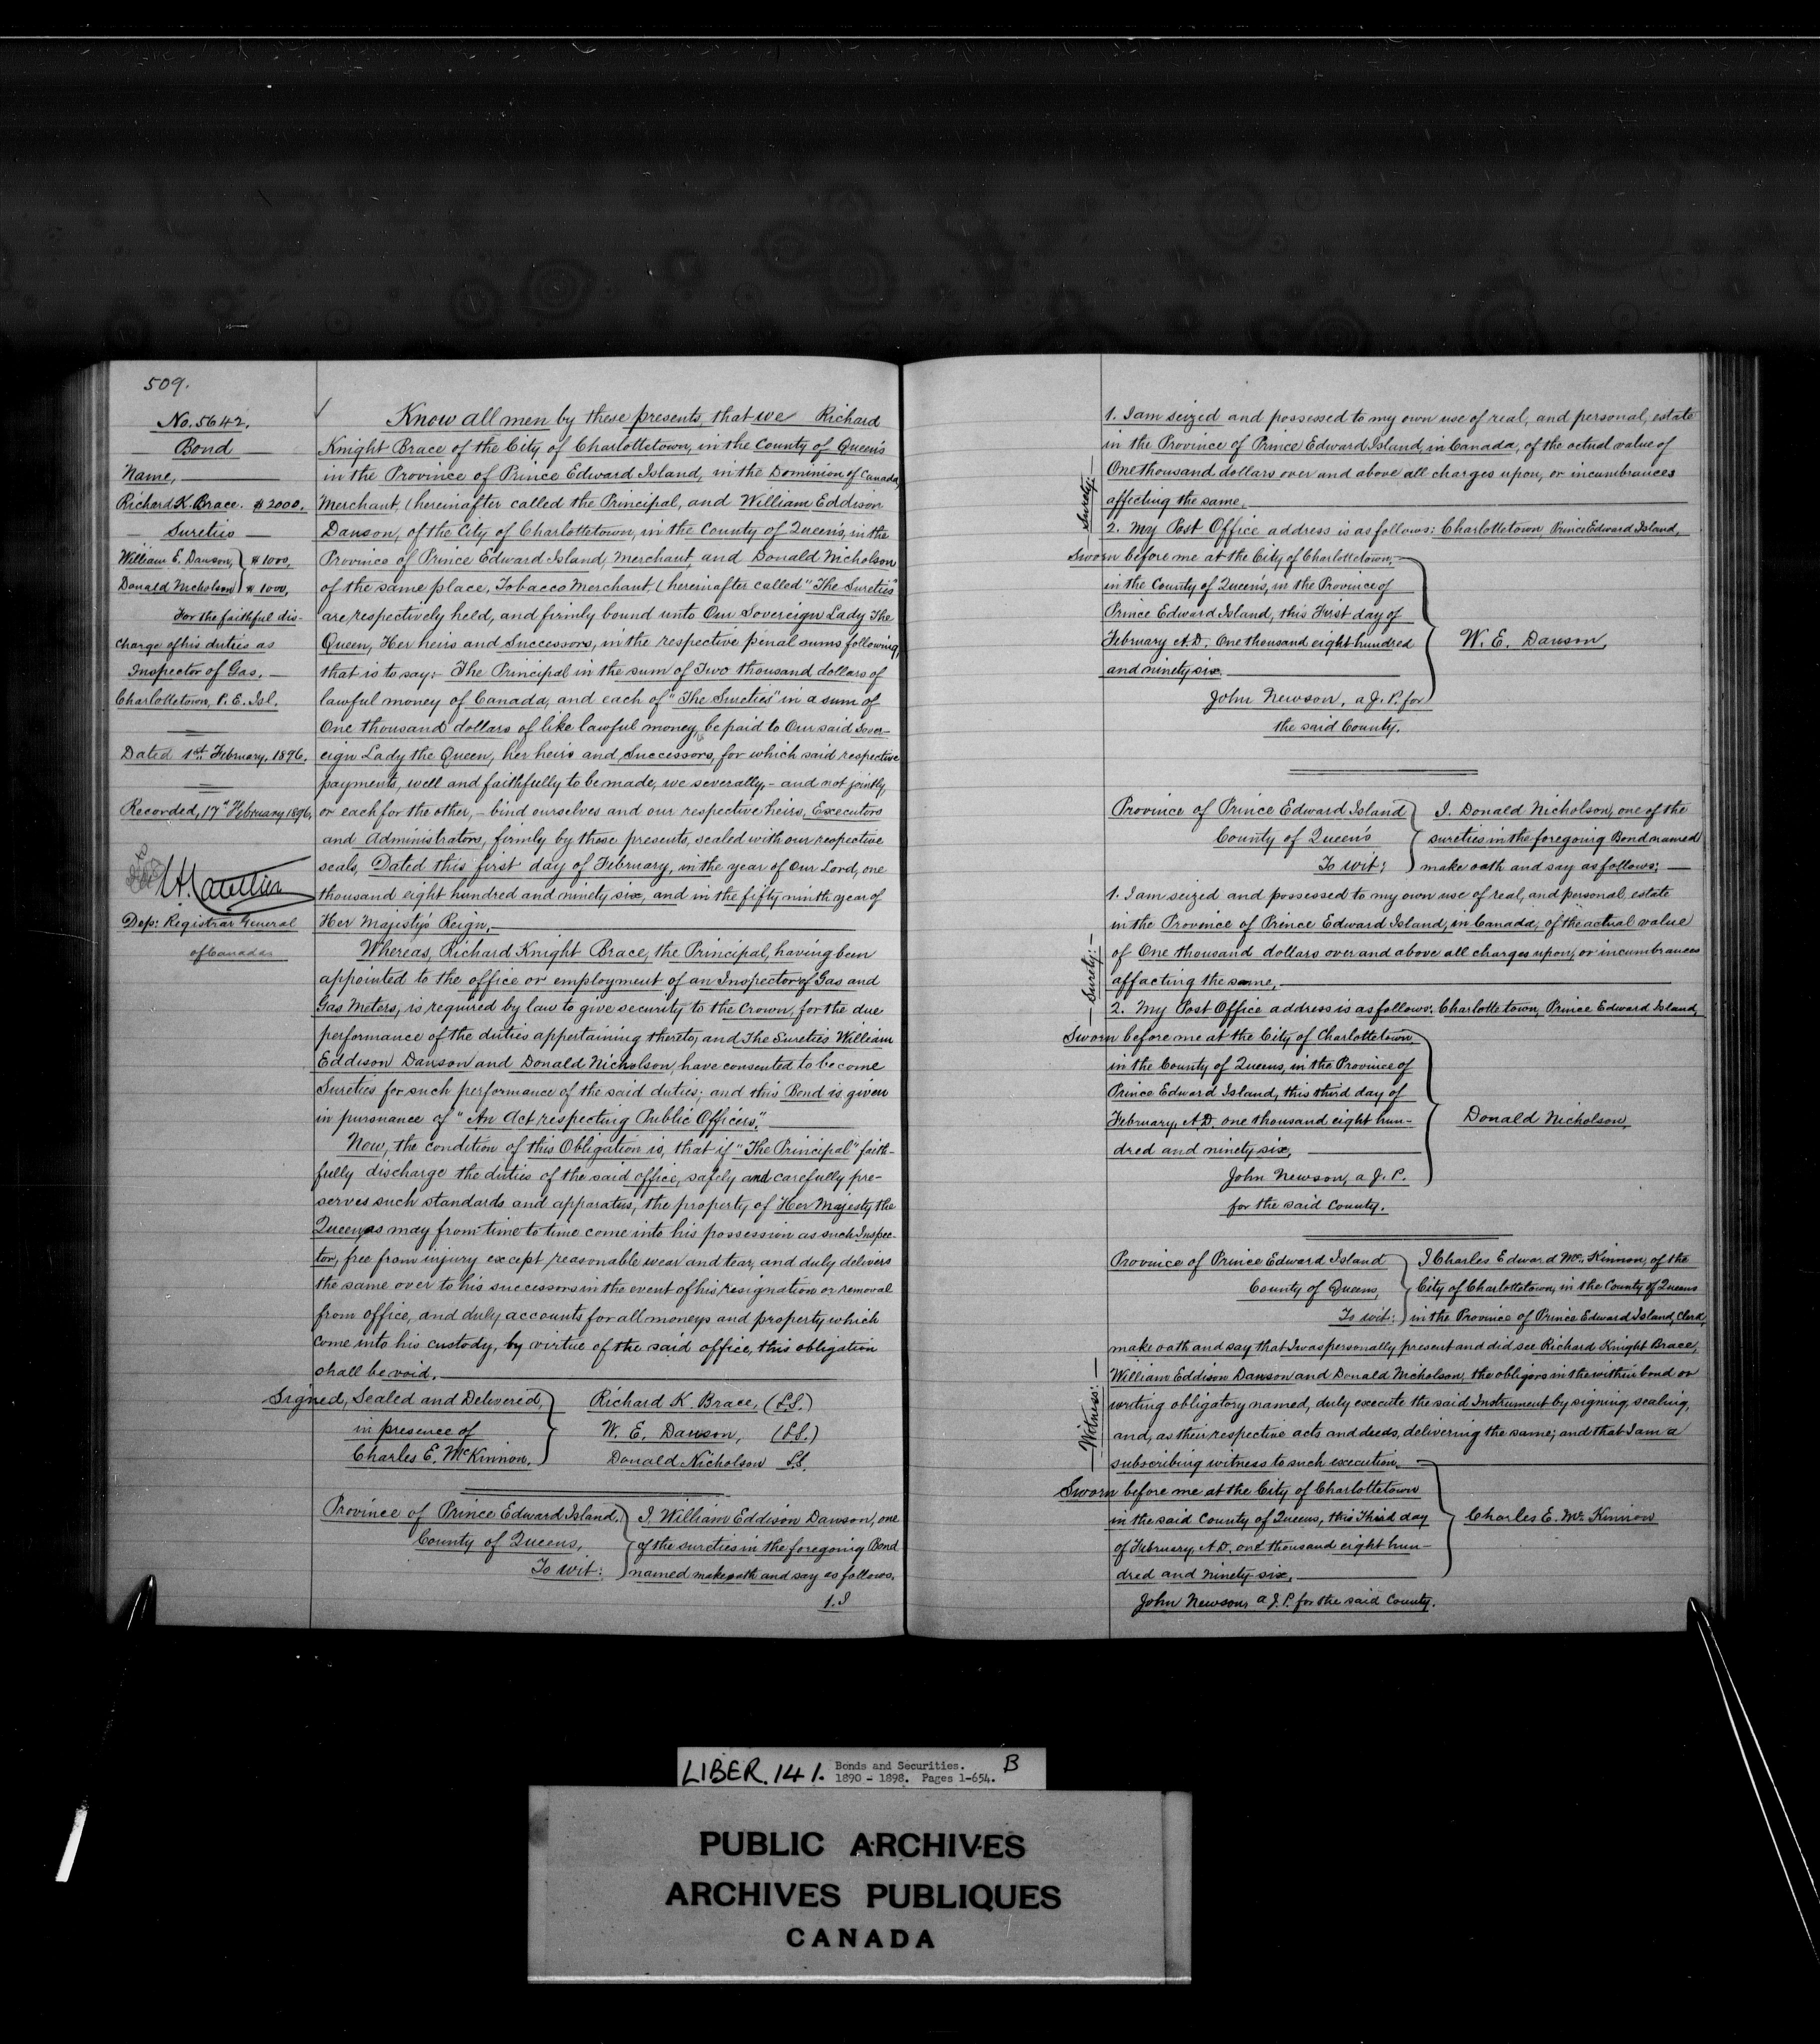 509.
No. 5642.
Bond
Name,
Richard K. Brace. $2000.
Sureties
William E. Dawson, } $1000,
Donald Nicholson } $1000,
For the faithful dis-
charge of his duties as
Inspector of Gas.
Charlottetown, P. E. Isl.
Dated 1st. February, 1896.
Recorded, 17th February 1896.
Dep: Registrar General
of Canada
Know all men by these presents, that we Richard
Knight Brace of the City of Charlottetown, in the County of Queen's
in the Province of Prince Edward Island, in the Dominion of Canada,
Merchant, (hereinafter called the Principal, and William Eddison
Dawson, of the City of Charlottetown, in the County of Queen's, in the
Province of Prince Edward Island, Merchant, and Donald Nicholson
of the same place, Tobacco Merchant, (hereinafter called "The Sureties"
are respectively held, and firmly bound unto Our Sovereign Lady The
Queen, Her heirs and Successors, in the respective penal sums following,
that is to say:- The Principal in the sum of Two thousand dollars of
lawful money of Canada, and each of "The Sureties" in a sum of
One thousand dollars of like lawful money, be paid to Our said Sover-
eign Lady the Queen, her heirs and Successors, for which said respective
payments, well and faithfully to be made, we severally,- and not jointly
or each for the other, - bind ourselves and our respective heirs, Executors
and Administrators, firmly by these presents, sealed with our respective
seals, Dated this first day of February, in the year of Our Lord, one
thousand eight hundred and ninety six, and in the fifty ninth year of
Her Majesty's Reign,
Whereas, Richard Knight Brace, the Principal, having been
appointed to the office or employment of an Inspector of Gas and
Gas Meters, is required by law to give security to the Crown, for the due
performance of the duties appertaining thereto, and The Sureties William
Eddison Dawson and Donald Nicholson, have consented to become
Sureties for such performance of the said duties; and this Bond is given
in pursuance of "An Act respecting Public Officers."
Now, the condition of this Obligation is, that if "The Principal" faith-
fully discharge the duties of the said office, safely and carefully pre-
serves such standards and apparatus, the property of Her Majesty the
Queen, as may from time to time come into his possession as such Inspec-
tor, free from injury except reasonable wear and tear, and duly delivers
the same over to his successors in the event of his resignation or removal
from office, and duly accounts for all moneys and property which
come into his custody, by virtue of the said office, this obligation
shall be void.
Signed, Sealed and Delivered, } Richard K. Brace, (LS.)
in presence of } W. E. Dawson, (LS.)
Charles E. McKinnon. } Donald Nicholson LS.
Province of Prince Edward Island, } I, William Eddison Dawson, one
County of Queens, } of the sureties in the foregoing Bond
To wit: } named make oath and say as follows.
1. I
1. I am seized and possessed to my own use of real, and personal, estate
in the Province of Prince Edward Island, in Canada, of the actual value of
One thousand dollars over and above all charges upon, or incumbrances
affecting the same,
2. My Post Office address is as follows: Charlottetown, Prince Edward Island,
-Surety:-
Sworn before me at the City of Charlottetown,
in the County of Queen's, in the Province of
Prince Edward Island, this First day of
February A.D. One thousand eight hundred } W. E. Dawson,
and ninety six.
John Newson, a J. P. for
the said County.
Province of Prince Edward Island } I, Donald Nicholson, one of the
County of Queen's } sureties in the foregoing Bond named
To wit: } make oath and say as follows:
1. I am seized and possessed to my own use of real, and personal, estate
in the Province of Prince Edward Island, in Canada, of the actual value
of One thousand dollars over and above all charges upon, or incumbrances
affacting the same,
2. My Post Office address is as follows: Charlottetown, Prince Edward Island,
-Surety:-
Sworn before me at the City of Charlottetown,
in the County of Queens, in the Province of
Prince Edward Island, this third day of
February, A.D. one thousand eight hun- } Donald Nicholson,
dred and ninety six,
John Newson, a J. P.
for the said County.
Province of Prince Edward Island } I Charles Edward Mc. Kinnon, of the
County of Queens, } City of Charlottetown, in the County of Queens
To wit: } in the Province of Prince Edward Island, Clerk,
make oath and say that I was personally present and did, see Richard Knight Brace,
William Eddison Dawson and Donald Nicholson, the obligors in the within bond or
writing obligatory named, duly execute the said Instrument by signing, sealing,
and, as their respective acts and deeds, delivering the same; and that I am a
subscribing witness to such execution.
-Witness:-
Sworn before me at the City of Charlottetown
in the said County of Queens, this Third day } Charles E. Mc. Kinnon
of February, A.D. one thousand eight hun-
dred and ninety-six,
John Newson, a J. P. for the said County.
LIBER. 141. Bonds and Securities. B
1890 - 1898. Pages 1-654.
PUBLIC ARCHIVES
ARCHIVES PUBLIQUES
CANADA